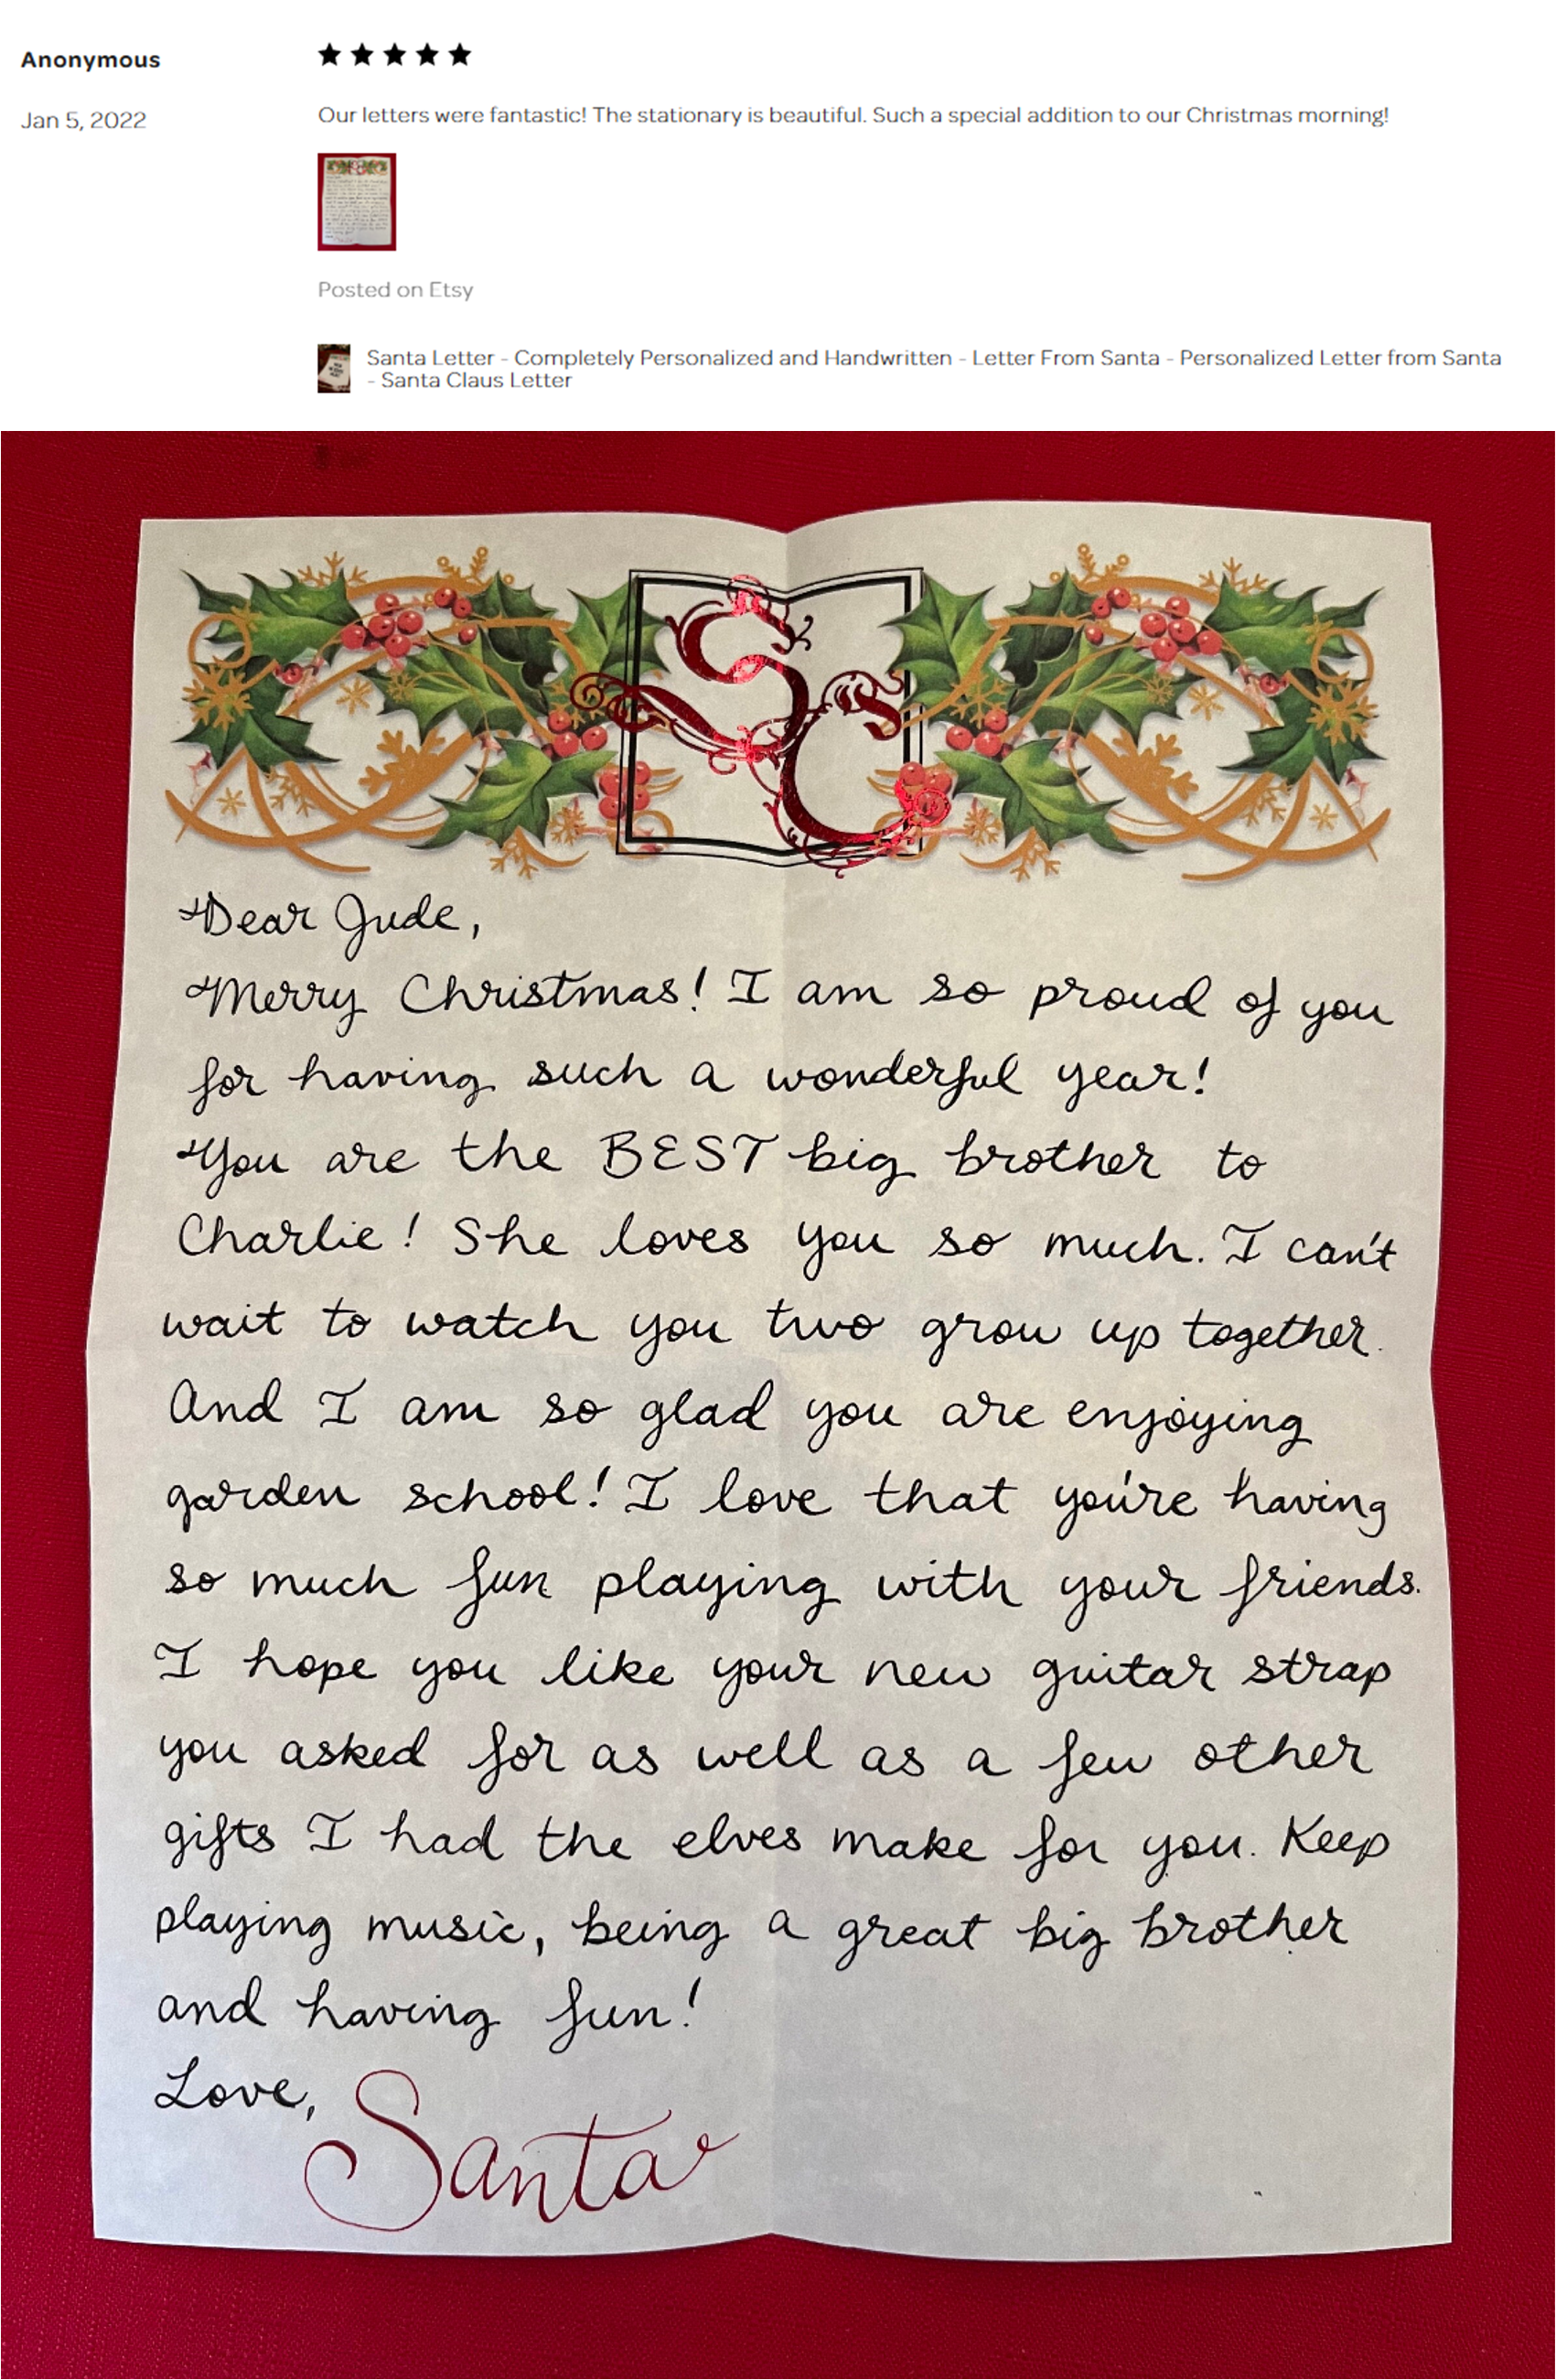 Anonymous
★★★★★
Jan 5, 2022
Our letters were fantastic! The stationary is beautiful. Such a special addition to our Christmas morning!
Posted on Etsy
Santa Letter - Completely Personalized and Handwritten - Letter From Santa - Personalized Letter from Santa
- Santa Claus Letter
SC
Dear Jude,
Merry Christmas! I am so proud of you
for having such a wonderful year!
You are the BEST big brother to
Charlie! She loves you so much. I can't
wait to watch you two grow up together.
And I am so glad you are enjoying
garden school! I love that you're having
so much fun playing with your friends.
I hope you like your new guitar strap
you asked for as well as a few other
gifts I had the elves make for you. Keep
playing music, being a great big brother
and having fun!
Love,
Santa